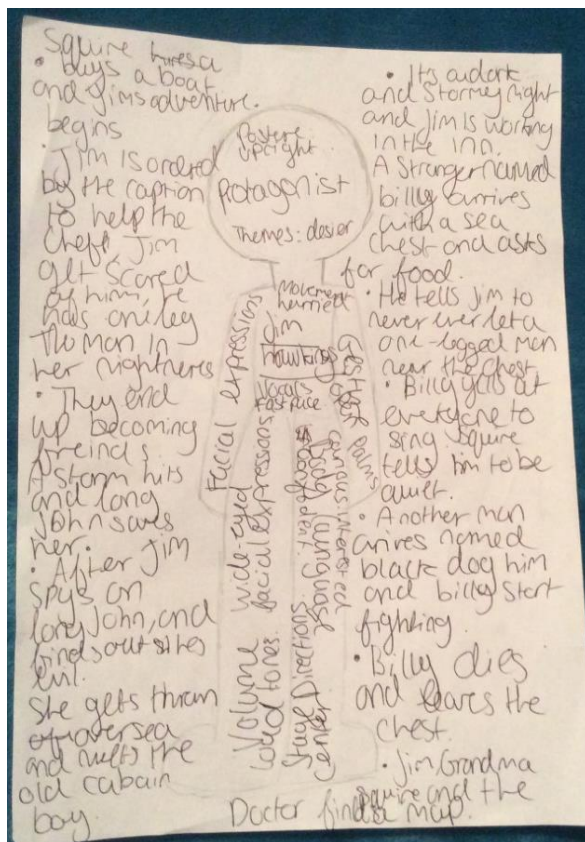 Squire hires a
• buys a boat
and Jims adventure.
begins
• Jim is ordered
by the caption
to help the
cheff, Jim
get scared
of him, he
has one leg
The man in
her nightmeres
• They end
up becoming
freinds.
A storm hits
and long
John saves
her.
• After Jim
spys on
long John, and
finds out
evil.
She gets thrown
oversea
and meets the
old cabain
boy.
Posture
upright
Protagonist
Themes: desier
Movement
hurried
Jim
hawkins
Vocals
Fast pace
Facial expressions
wide-eyed
facial expressions
Volume
loud tones.
Gesture
open palms
body language
Stage Directions
center
• Its a dark
and stormey night
and Jim is working
in the inn.
A stranger named
billy arrives
with a sea
chest and asks
for food.
• He tells Jim to
never ever let a
one-legged man
near the chest
• Billy yells at
everyone to
sing squire
tells him to be
quiet.
• Another man
arives named
black dog him
and billy start
fighting.
• Billy dies
and leaves the
chest.
• Jim, Grandma
squire and the
Doctor find a map.